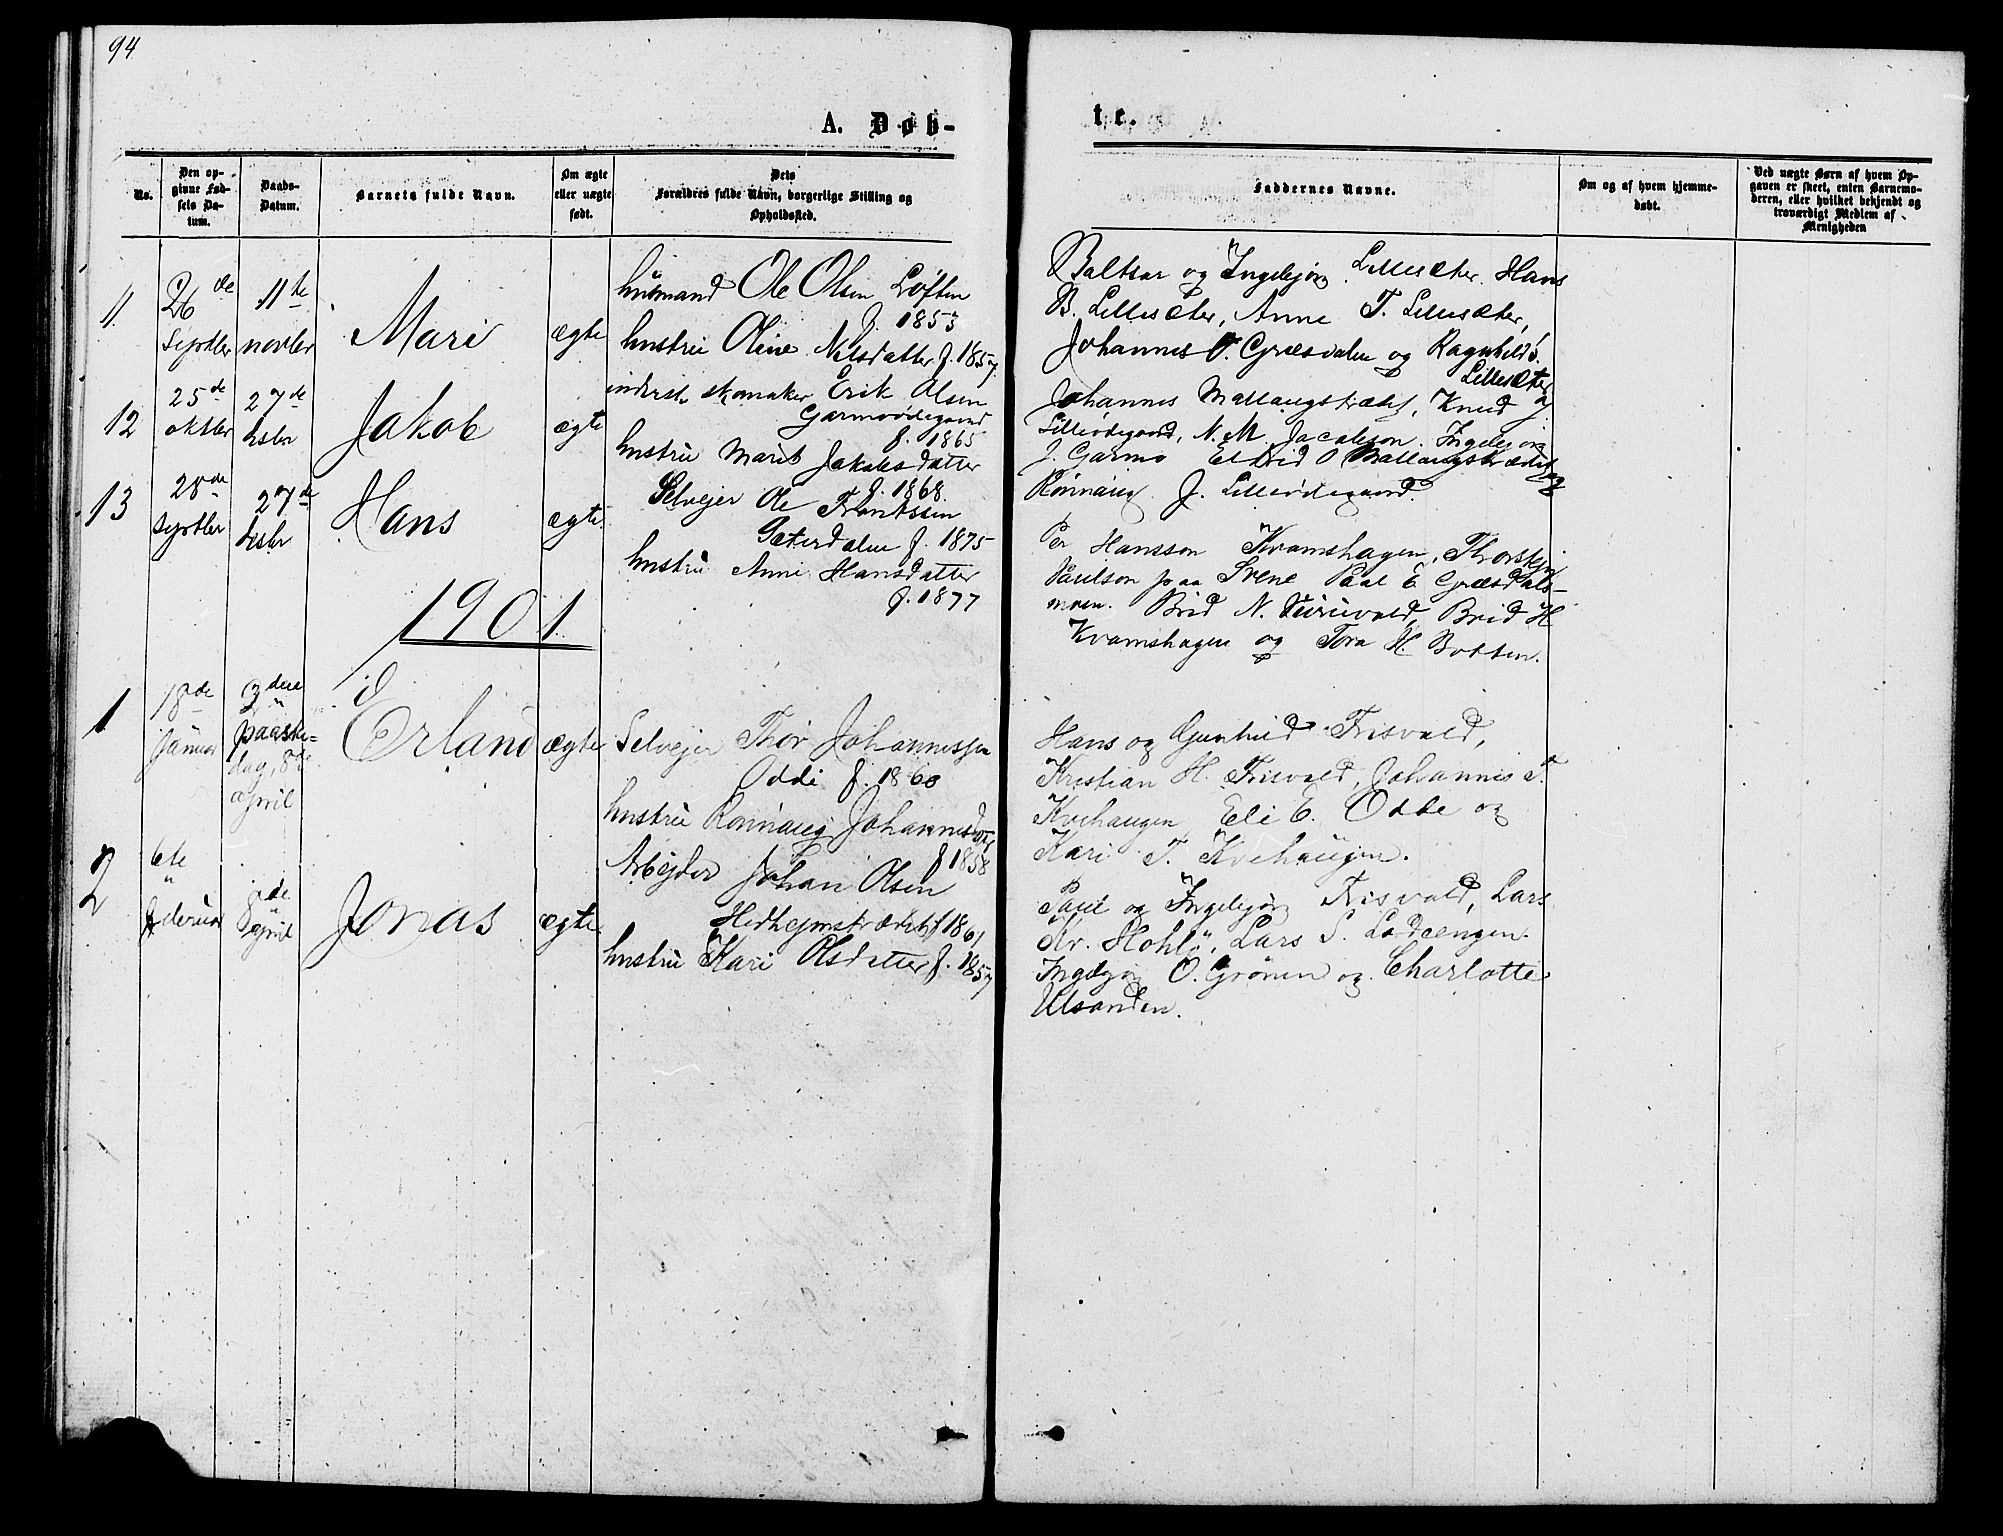 94
A. Døb-
te.
No.
Den op-
givne Fød-
sels Da-
tum.
Daabs-
Datum.
Barnets fulde Navn.
Om ægte
eller uægte
født.
Dets
Forældres fulde Navn, borgerlige Stilling og
Opholdssted.
Faddernes Navne.
Om og af hvem hjemme-
døbt.
Ved uægte Børn af hvem Op-
gaven er skeet, enten Barnemo-
deren, eller hvilket bekjendt og
troværdigt Medlem af
Menigheden
11
26de
Septbr
11te
novbr
Mari
ægte
husmand Ole Olsen Løften
f. 1853
hustru Oline Nilsdatter f. 1857
Baltsar og Ingebjør Lillesæter. Hans
B. Lillesæter, Anne T. Lillesæter,
Johannes O. Græsdalen og Ragnhild
Lillesæter
12
25de
oktbr
27de
Jakob
ægte
inderst skomaker Erik Olsen
Garmoødegaard
f. 1865
hustru Marit Jakobsdatter
f. 1868.
Johannes Mallaugstrædet, Knud J
Lilleødegaard, N. M. Jacobson. Ingebjør
J. Garmo Eldrid O Mallaugstrædet
og
Rønnaug J. Lilleødegaard.
13
28de
Septbr
27de
Hans
ægte
Selvejer Ole Frantssen
Geterdalen f. 1875
hustru Anne Hansdatter
f. 1877
Per Hansson Kvamshagen, Thorstein
Paulson paa Svene Paal E Græsdals-
moen. Brid N. Furuvald, Brid H
Kvamshagen og Tora H. Botten.
1901
1
18de
Januar
2den
paaske-
dag, 8de
april
Erland
ægte
Selvejer Thor Johannessen
Odde f. 1860
hustru Rønnaug Johannesdotr
f 1858
Hans og Gunhild Frisvold,
Kristian H. Frisvold, Johannis T.
Kvehaugen Eli E. Odde og
Kari T. Kvehaugen.
2
6te
februar
8de
april
Jonas
ægte
Arbejder Johan Olsen
Herheimstrædet f 1861
hustru Kari Olsdatter f. 1857
Paul og Ingebjør Frisvold, Lars
Kr. Hohle, Lars S. Lødeengen.
Ingebjør O. Grønen og Charlotte
Ulsanden.